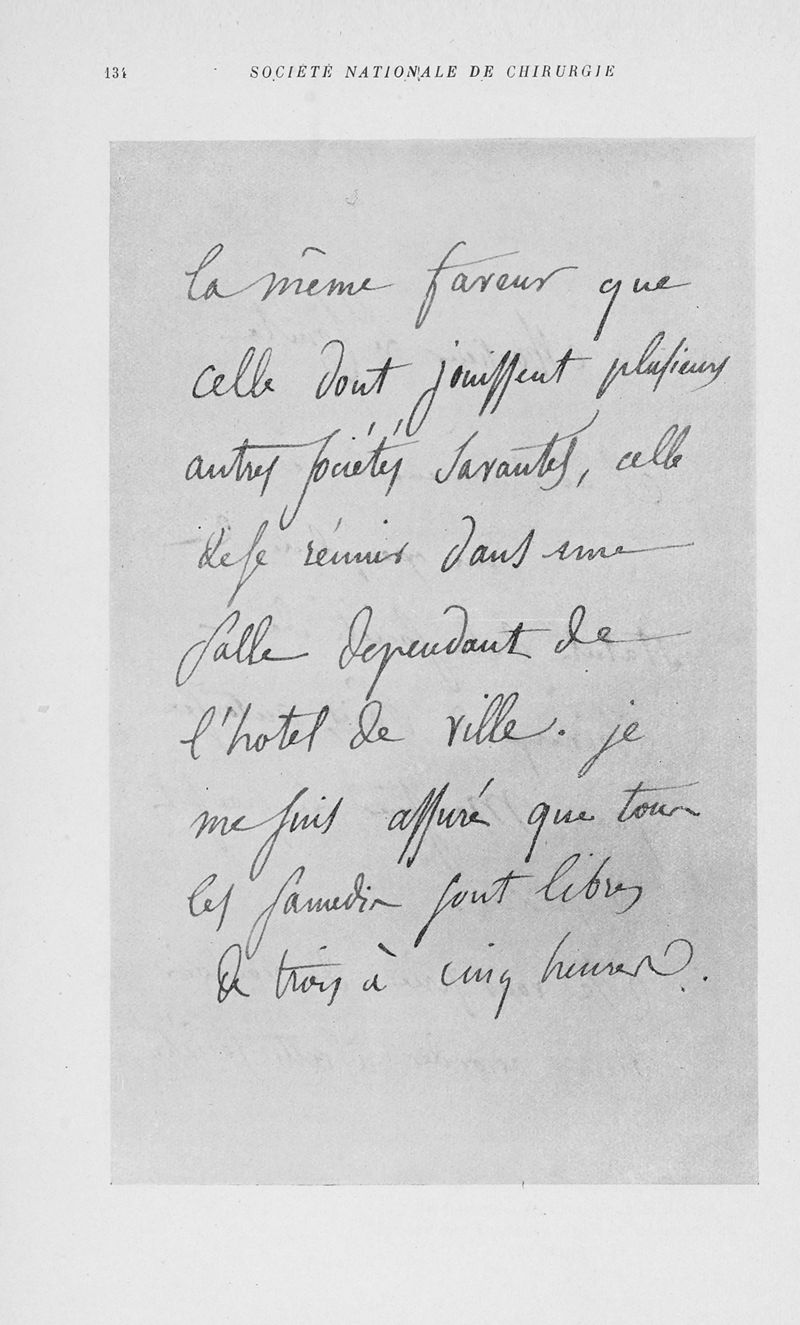 134 SOCIÉTÉ NATIONALE DE CHIRURGIE
la même faveur que
celle dont jouissent plusieurs
autres sociétés savantes, celle
de se réunir dans une
salle dependant de
l'hotel de ville. je
me suis assuré que tous
les samedis sont libres
de trois à cinq heures.